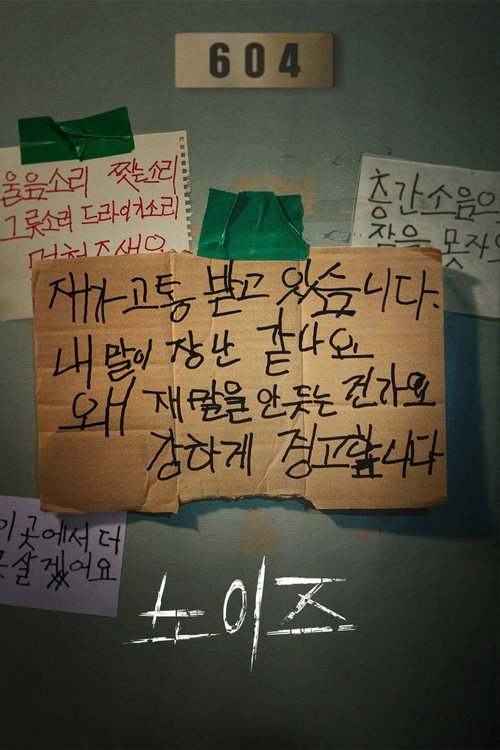 604
울음소리 찢는소리
그릇소리 드라이기소리
층간소음으
잠을 못자
재가 고통 받고 있습니다.
내 말이 장난 같나요
왜 재 말을 안듯는 건가요
강하게 경고합니다
이 곳에서 더
살겠어요
노이즈